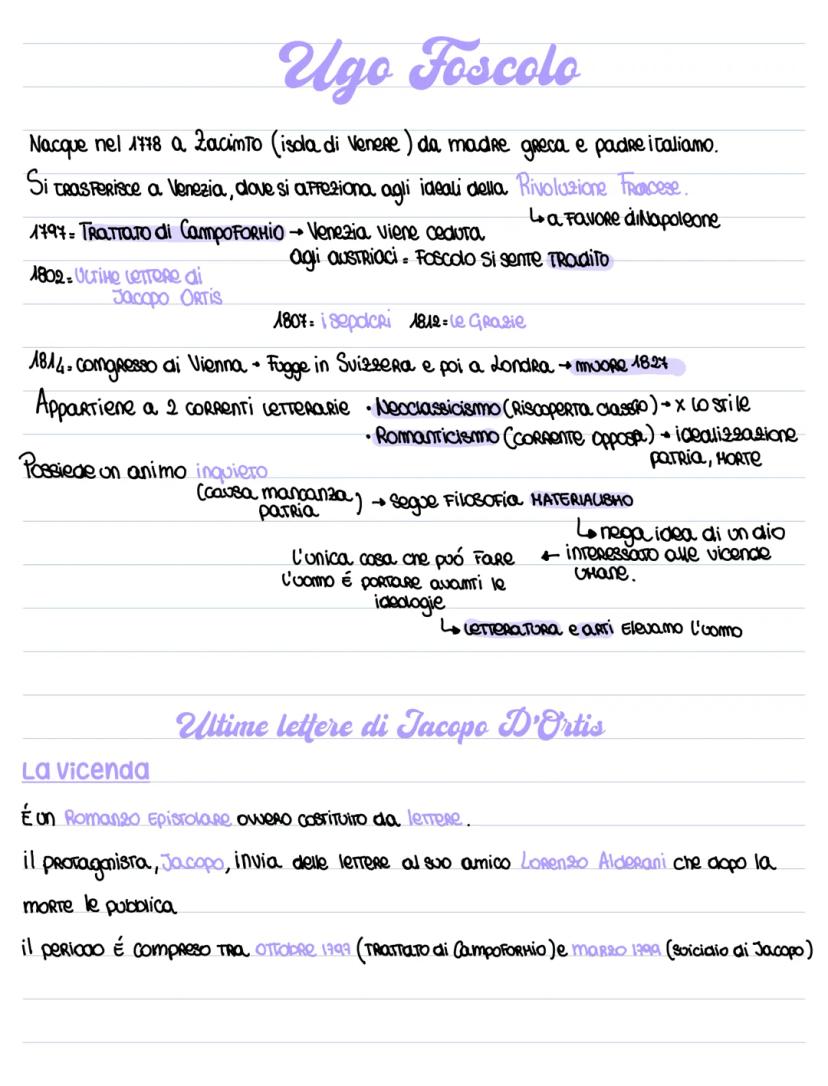 Ugo Foscolo
Nacque nel 1778 a Zacinto (isola di Venere) da madre greca e padre italiano.
Si trasferisce a Venezia, dove si affeziona agli ideali della Rivoluzione Francese.
↳ a favore di Napoleone
1797= Trattato di Campoformio → Venezia viene ceduta
agli austriaci = Foscolo si sente tradito
1802= Ultime lettere di
Jacopo Ortis
1807= i sepolcri 1812= le Grazie
1814= congresso di Vienna - Fugge in Svizzera e poi a Londra → muore 1827
Appartiene a 2 correnti letterarie • Neoclassicismo (riscoperta classio) → x lo stile
• Romanticismo (corrente opposa) → idealizzazione
patria, morte
Possiede un animo inquieto
(causa mancanza
patria) → segue filosofia materialismo
↳ nega idea di un dio
interessato alle vicende
umane.
← L'unica cosa che può fare
l'uomo é portare avanti le
ideologie
↳ letteratura e arti elevano l'uomo
Ultime lettere di Jacopo D'Ortis
La vicenda
É un Romanzo Epistolare ovvero costituito da lettere.
il protagonista, Jacopo, invia delle lettere al suo amico Lorenzo Alderani che dopo la
morte le pubblica
il periodo É compreso tra ottobre 1797 (Trattato di Campoformio) e marzo 1799 (suicidio di Jacopo)